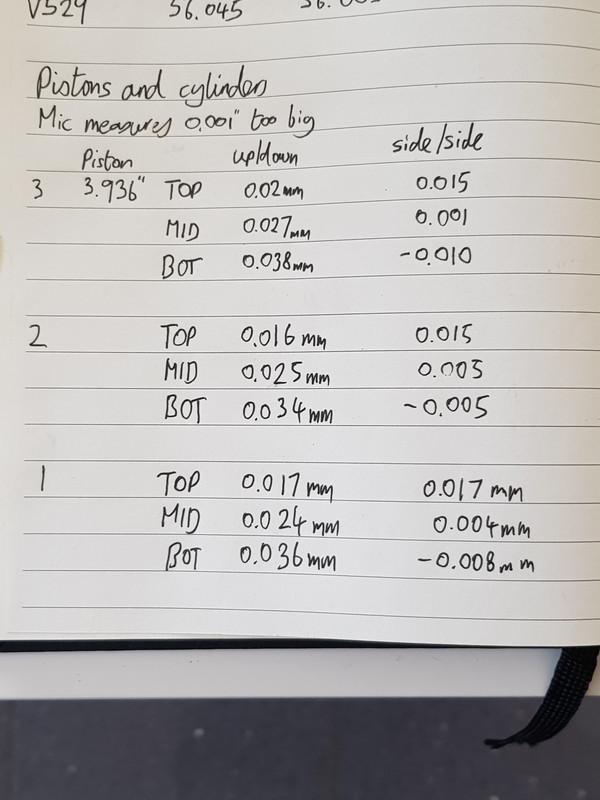 V529 56.045 56.00
Pistons and cylinders
Mic measures 0.001" too big
Piston up/down side/side
3 3.936" TOP 0.02mm 0.015
MID 0.027mm 0.001
BOT 0.038mm -0.010
2 TOP 0.016mm 0.015
MID 0.025mm 0.003
BOT 0.034mm -0.005
1 TOP 0.017mm 0.017mm
MID 0.024mm 0.004mm
BOT 0.036mm -0.008mm